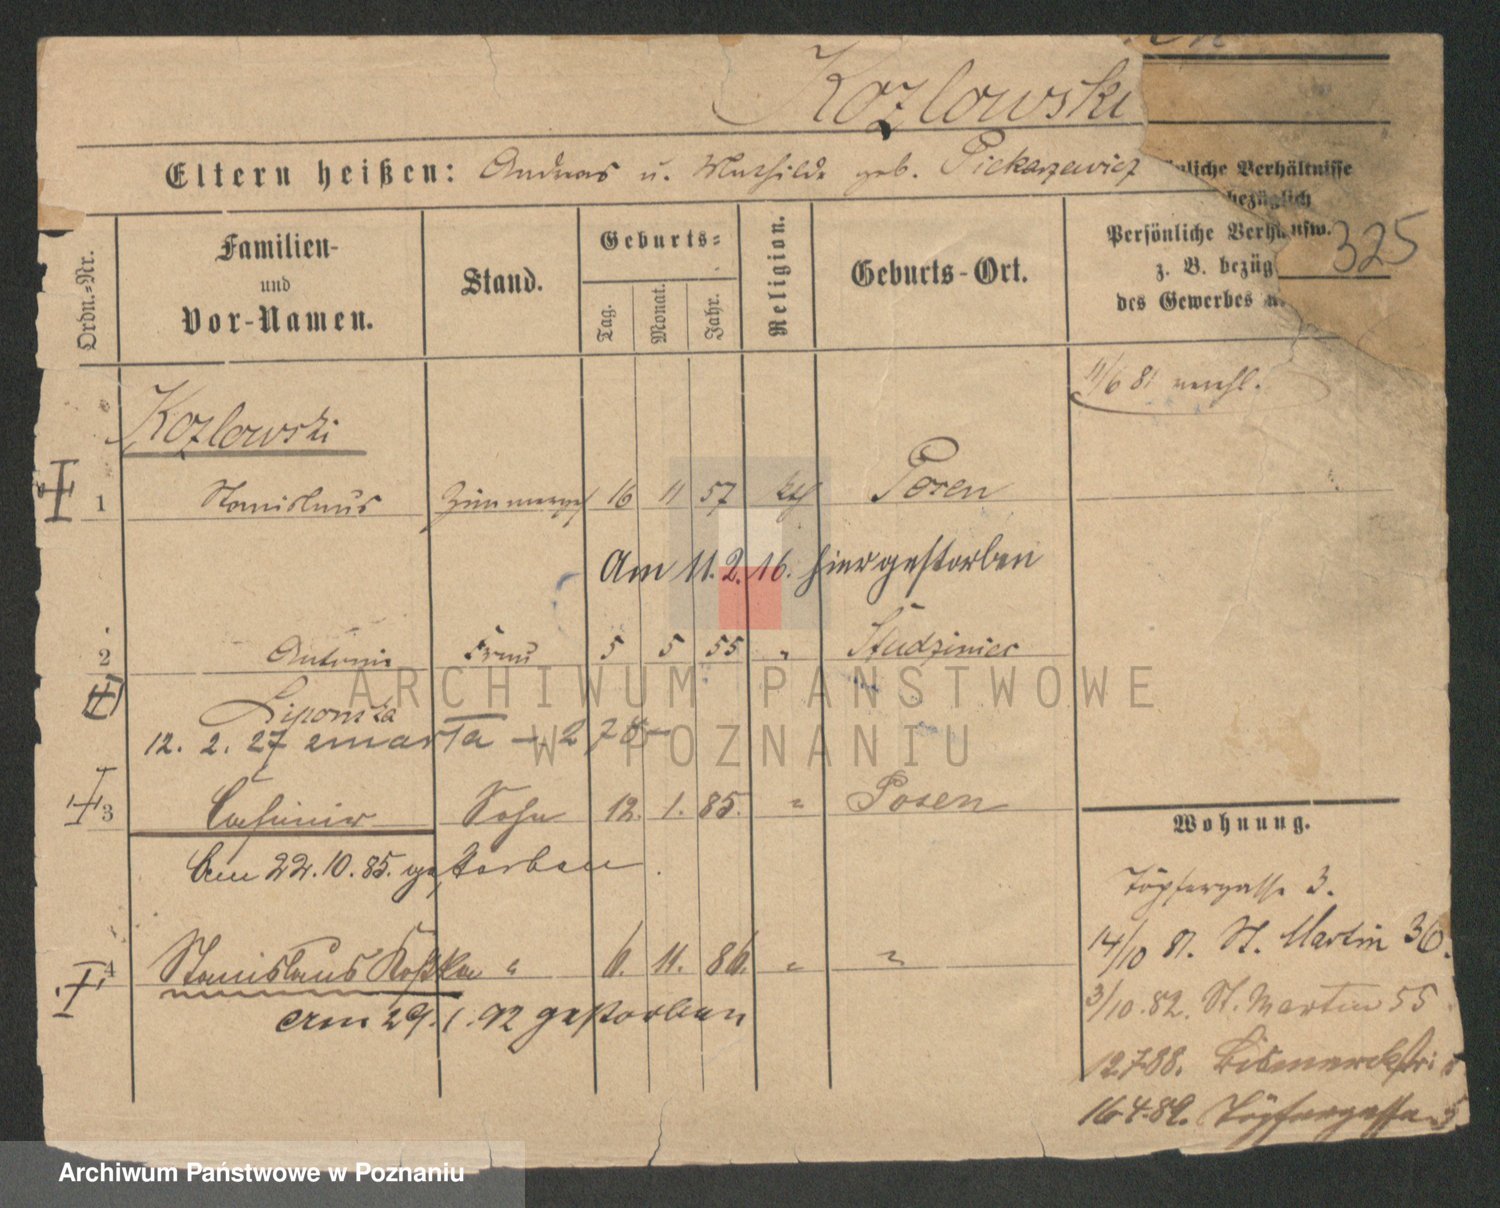 Kozlowski
Eltern heißen: Andreas u. Mathilde geb. Piekarzewicz
nliche Verhältnisse
bezüglich
usw.
325
Ordn.-Nr.
Familien-
und
Vor-Namen.
Stand.
Geburts-
Tag.
Monat.
Jahr.
Religion.
Geburts-Ort.
Persönliche Verhä
z. B. bezüg
des Gewerbes u.
11/6 81 verehl.
Kozlowski
1 Stanislaus Zimmerges 16 11 57 kth Posen
Am 11.2.16. hier gestorben
2 Antonie Frau 5 5 55 " Studziniec
Liponska
12. 2. 27 zmarła – 278
3 Casimir Sohn 12. 1. 85. " Posen
Am 22.10.85. gestorben.
4 Stanislaus Kostka " 6. 11. 86. " "
am 29.1.92 gestorben
Wohnung.
Töpfergasse 3.
14/10 81. St. Martin 36.
3/10.82. St. Martin 55
12.7.88. Bismarckstr.
16.4.89. Töpfergasse 3
ARCHIWUM PAŃSTWOWE
W POZNANIU
Archiwum Państwowe w Poznaniu